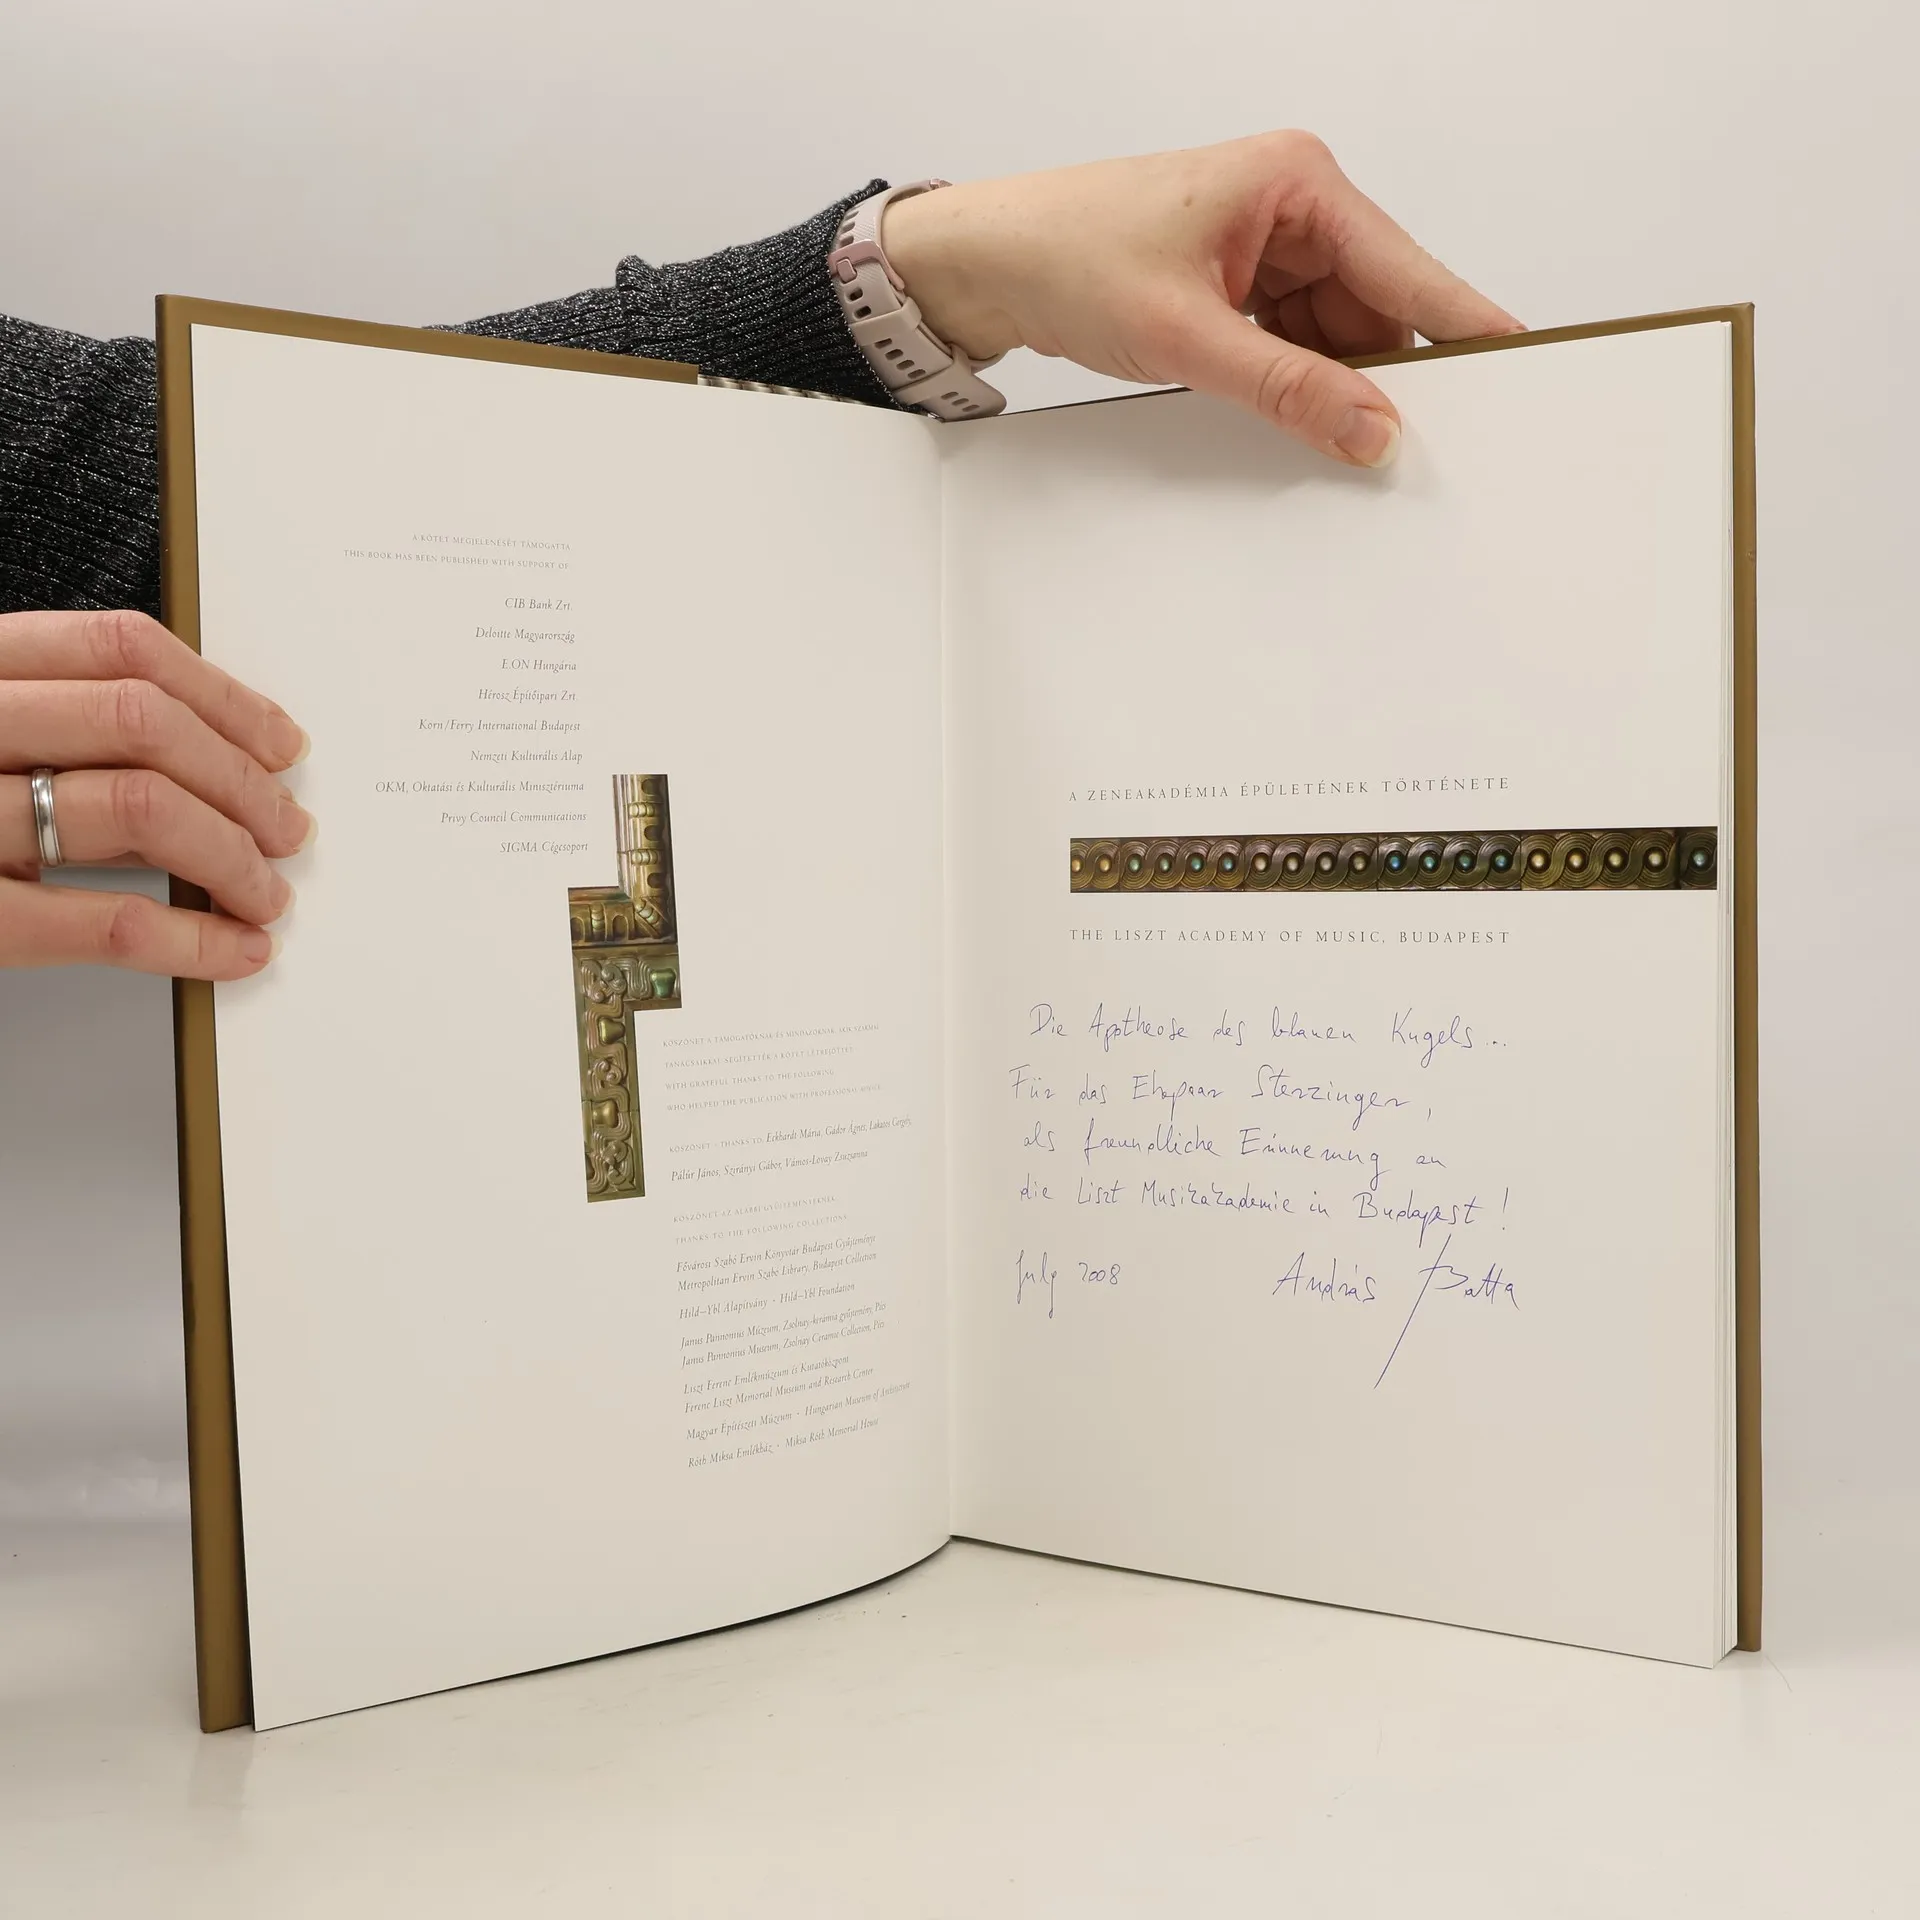 A KÖTET MEGJELENÉSÉT TÁMOGATTA
THIS BOOK HAS BEEN PUBLISHED WITH SUPPORT OF:
CIB Bank Zrt.
Deloitte Magyarország
E.ON Hungária
Hérosz Építőipari Zrt.
Korn/Ferry International Budapest
Nemzeti Kulturális Alap
OKM, Oktatási és Kulturális Minisztériuma
Privy Council Communications
SIGMA Cégcsoport
KÖSZÖNET A TÁMOGATÓKNAK ÉS MINDAZOKNAK, AKIK SZAKMAI
TANÁCSAIKKAL SEGÍTETTÉK A KÖTET LÉTREJÖTTÉT
WITH GRATEFUL THANKS TO THE FOLLOWING
WHO HELPED THE PUBLICATION WITH PROFESSIONAL ADVICE
KÖSZÖNET - THANKS TO: Eckhardt Mária, Gádor Ágnes, Lakatos Gergely,
Pálúr János, Szirányi Gábor, Vámos-Lovay Zsuzsanna
KÖSZÖNET AZ ALÁBBI GYŰJTEMÉNYEKNEK
THANKS TO THE FOLLOWING COLLECTIONS
Fővárosi Szabó Ervin Könyvtár Budapest Gyűjteménye
Metropolitan Ervin Szabó Library, Budapest Collection
Hild–Ybl Alapítvány - Hild–Ybl Foundation
Janus Pannonius Múzeum, Zsolnay-kerámia gyűjtemény, Pécs
Janus Pannonius Museum, Zsolnay Ceramic Collection, Pécs
Liszt Ferenc Emlékmúzeum és Kutatóközpont
Ferenc Liszt Memorial Museum and Research Center
Magyar Építészeti Múzeum - Hungarian Museum of Architecture
Róth Miksa Emlékház - Miksa Róth Memorial House
A ZENEAKADÉMIA ÉPÜLETÉNEK TÖRTÉNETE
THE LISZT ACADEMY OF MUSIC, BUDAPEST
Die Apotheose des blauen Kugels...
Für das Ehepaar Sterzinger,
als freundliche Erinnerung an
die Liszt Musikakademie in Budapest!
July 2008 András Batta